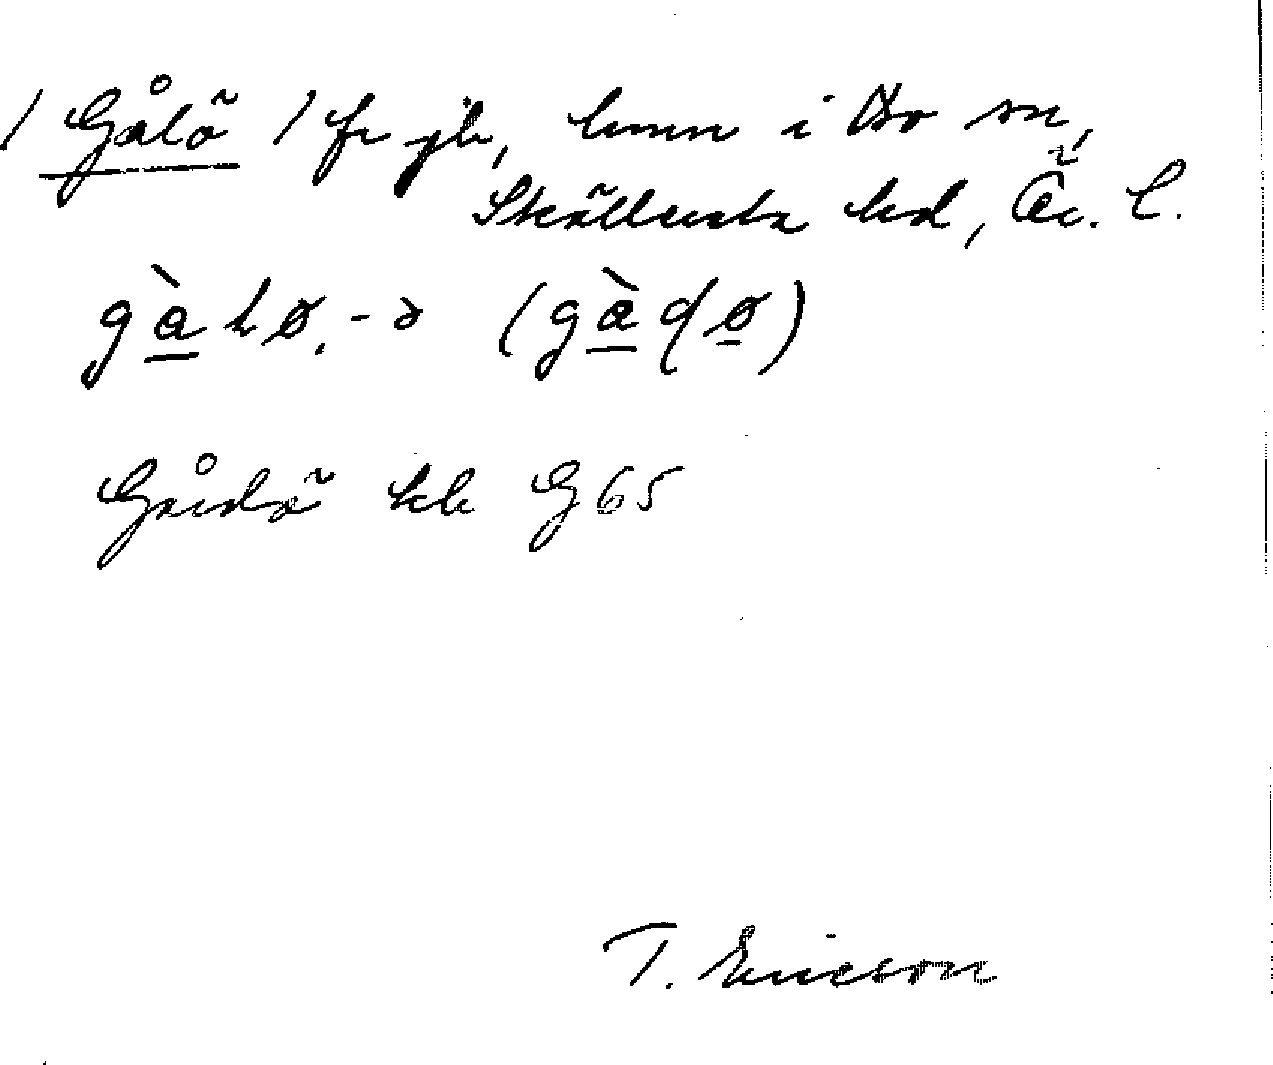 / Gålö / fr jb, hmn i Bo sn,
Sköllersta hd, Ör. l.
gàlø.-ə (gàɖø)
Gårdö kb G65
T. Ericson